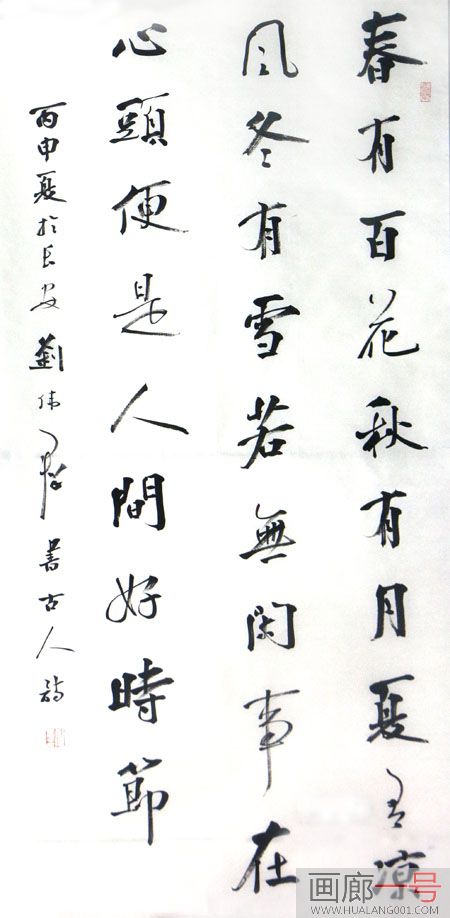 春有百花秋有月夏有涼
风冬有雪若無闲事在
心頭便是人間好時節
丙申夏於长安劉伟书古人詩
画廊一号
WWW.HUALANG001.COM